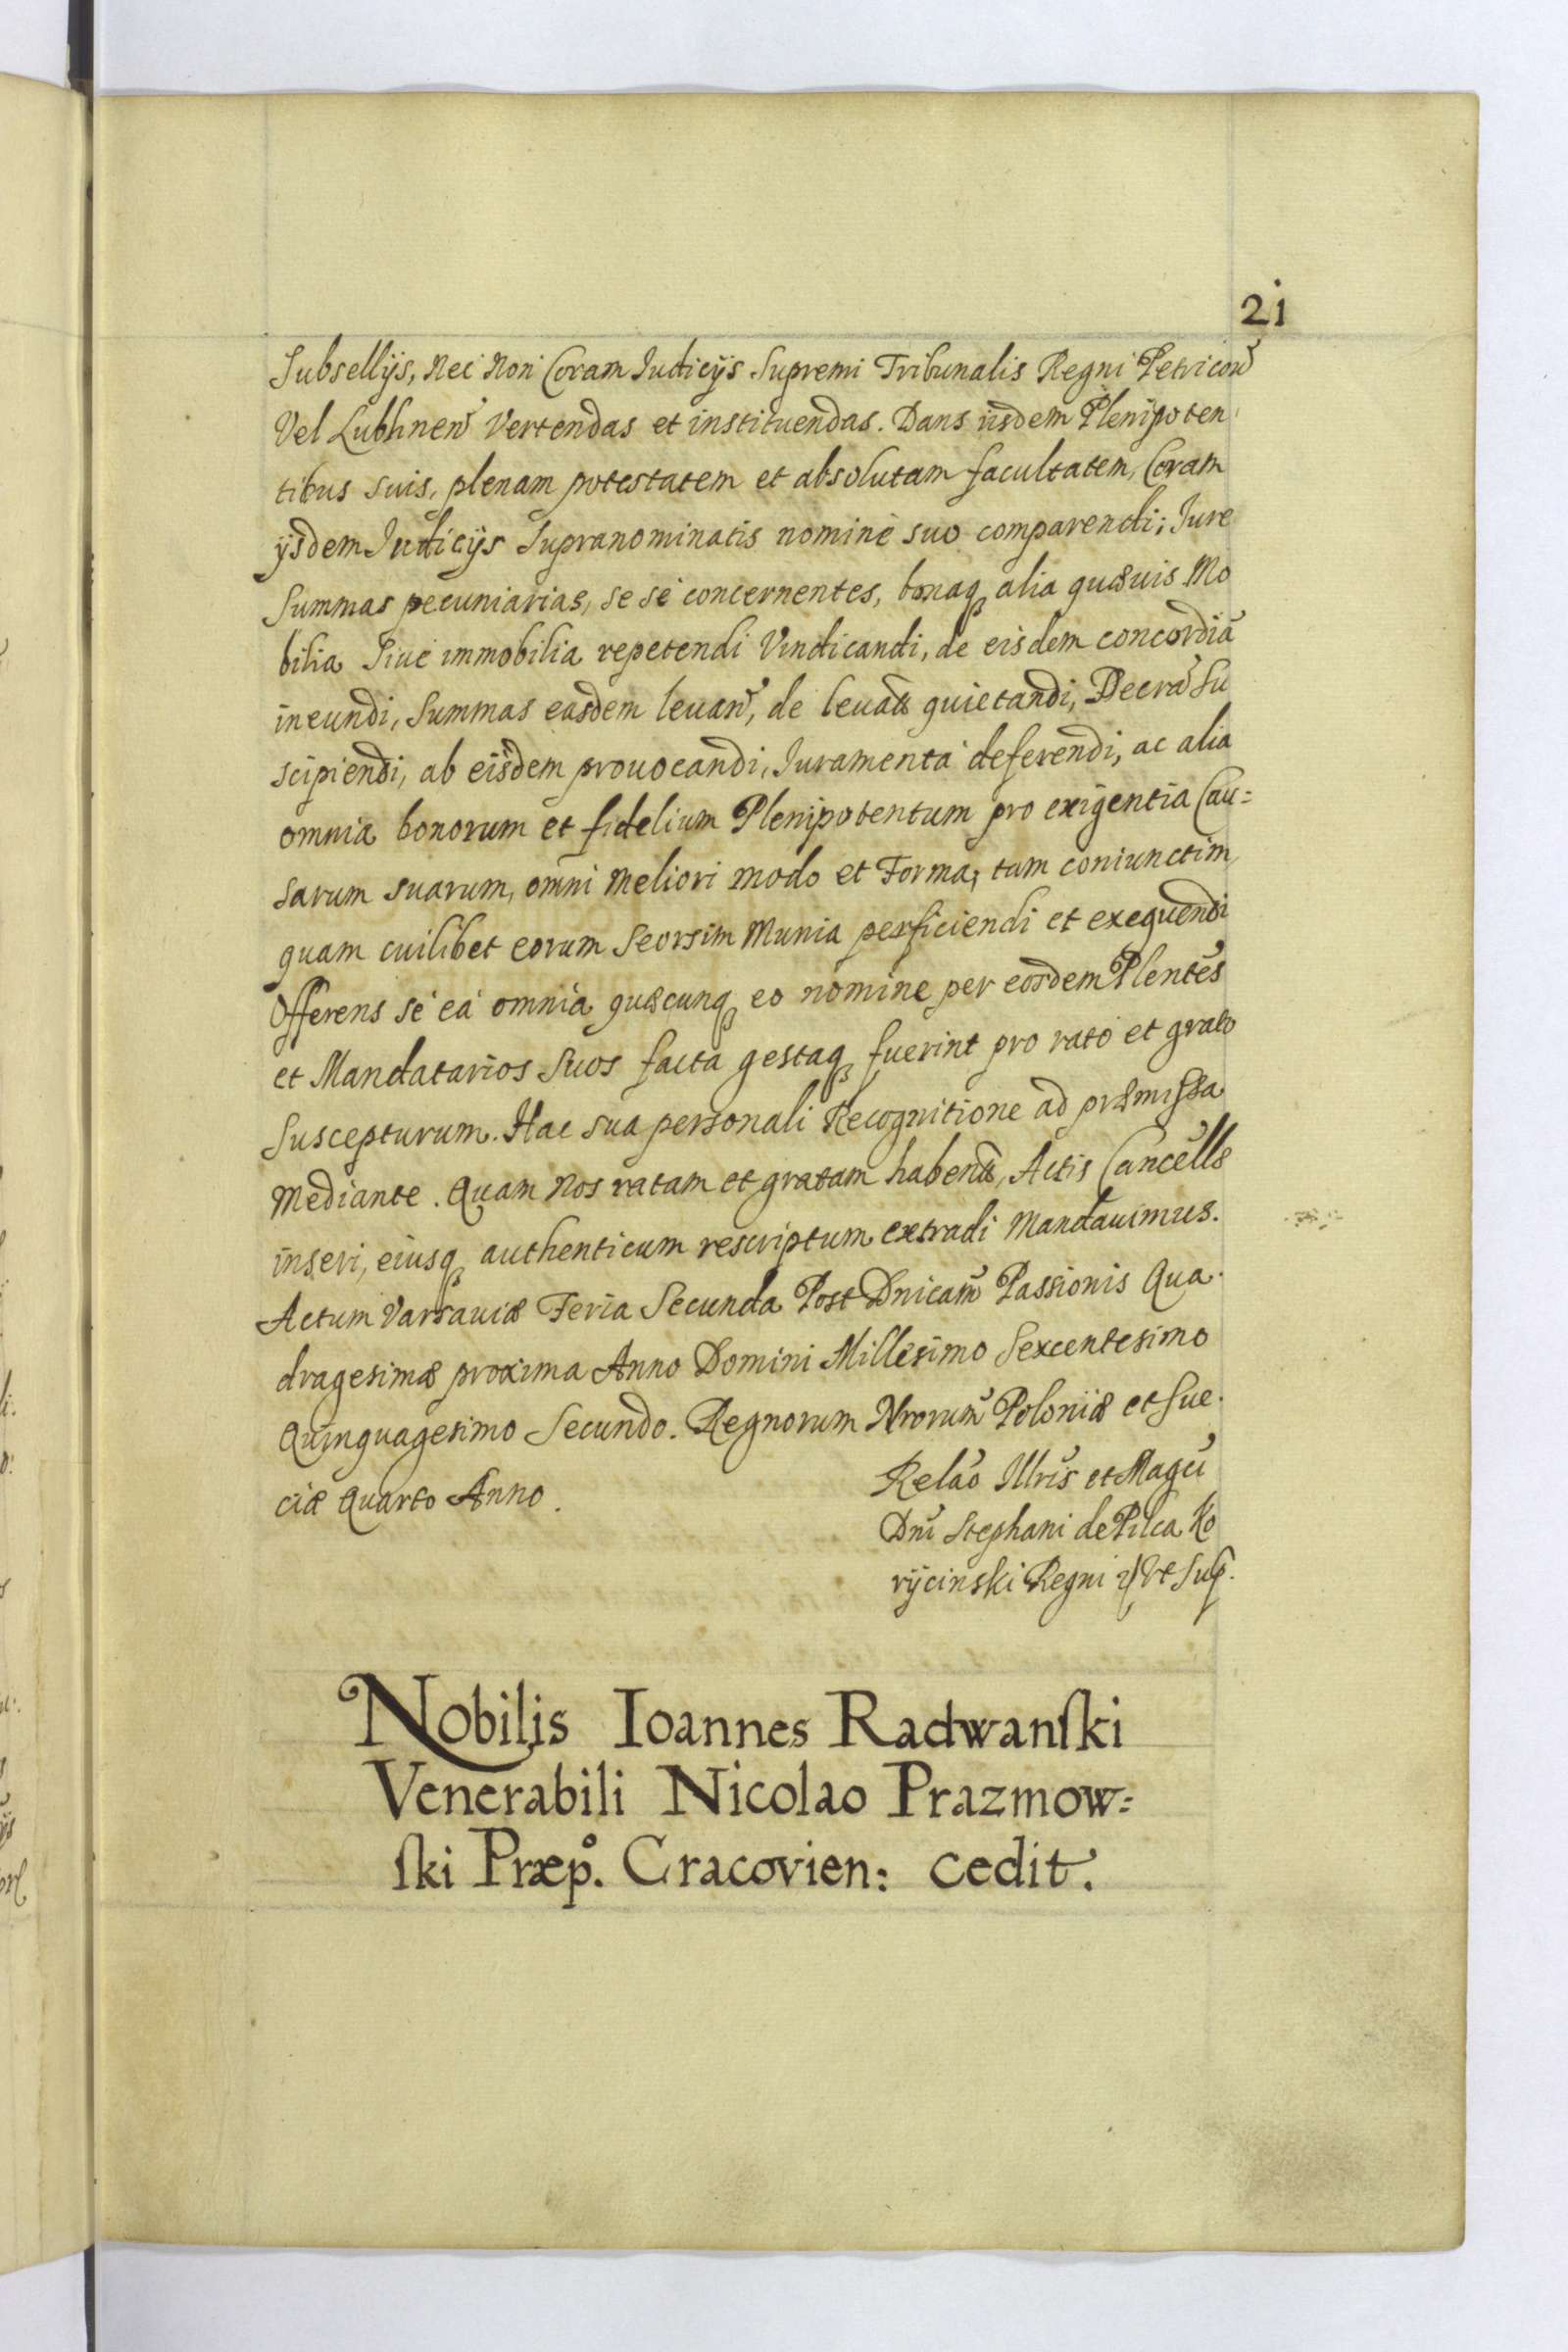 21
Subsellijs, nec non Coram Iudicijs Supremi Tribunalis Regni Petricoñ
Vel Lublineñ Vertendas et instituendas. Dans iisdem Plenipoten
tibus suis, plenam potestatem et absolutam facultatem, Coram
ijsdem Iudicijs Supranominatis nomine suo comparendi; Iure
Summas pecuniarias, se se concernentes, bonaq alia quæuis Mo
bilia Siue immobilia repetendi Vindicandi, de eisdem concordiã
ineundi, Summas easdem leuañ, de leuatis quietandi, Decrã Su
scipiendi, ab eisdem prouocandi, Iuramenta deferendi, ac alia
omnia bonorum et fidelium Plenipotentum pro exigentia Cau=
sarum suarum, omni meliori modo et Forma, tam coniunctim
quam cuilibet eorum Seorsim Munia perficiendi et exequendi
Offerens se ea omnia quæcunq eo nomine per eosdem Plentes
et Mandatarios Suos facta gestaq fuerint pro rato et grato
Suscepturum. Hac sua personali Recognitione ad præmissa
Mediante. Quam Nos ratam et gratam haben̄, Actis Cancellæ
inseri, eiusq authenticum rescriptum extradi Mandauimus.
Actum Varsauiæ Feria Secunda Post Dnicam Passionis Qua
dragesimæ proxima Anno Domini Millesimo Sexcentesimo
Quinquagesimo Secundo. Regnorum Nrorum Poloniæ et Sue
ciæ Quarto Anno.
Relão Illris et Magci
Dni Stephani de Pilca Ko
rijcinski Regni Vt Sup.
Nobilis Ioannes Radwanſki
Venerabili Nicolao Prazmow=
ſki Præp°. Cracovien: cedit.